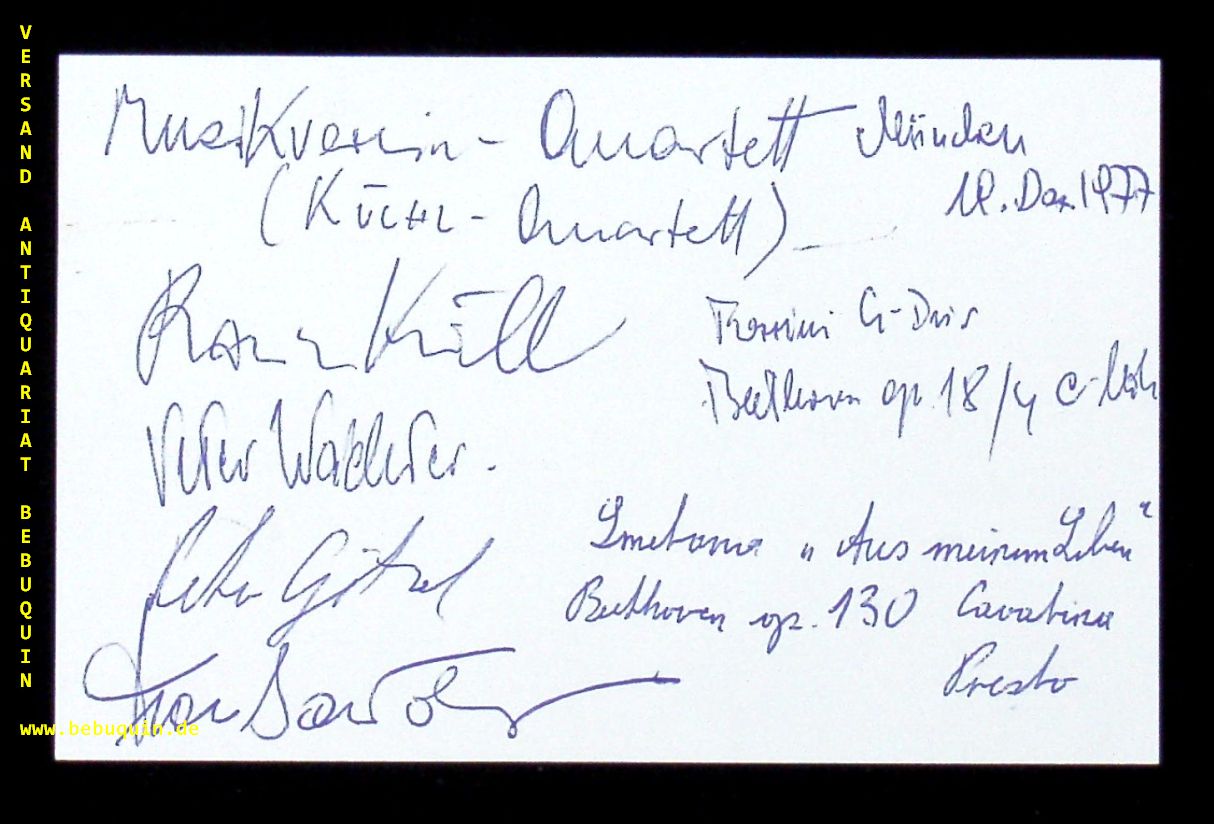 VERSAND ANTIQUARIAT BEBUQUIN
Musikverein - Quartett München
(KÜCHL - Quartett) 
Dez. 1977
Rainer Küchl
Rossini G-Dur
Beethoven op. 18/4 c-Moll
Peter Wächter.
Smetana „Aus meinem Leben"
Peter Götzel
Beethoven op. 130 Cavatina
Presto
Franz Bartolomey
www.bebuquin.de